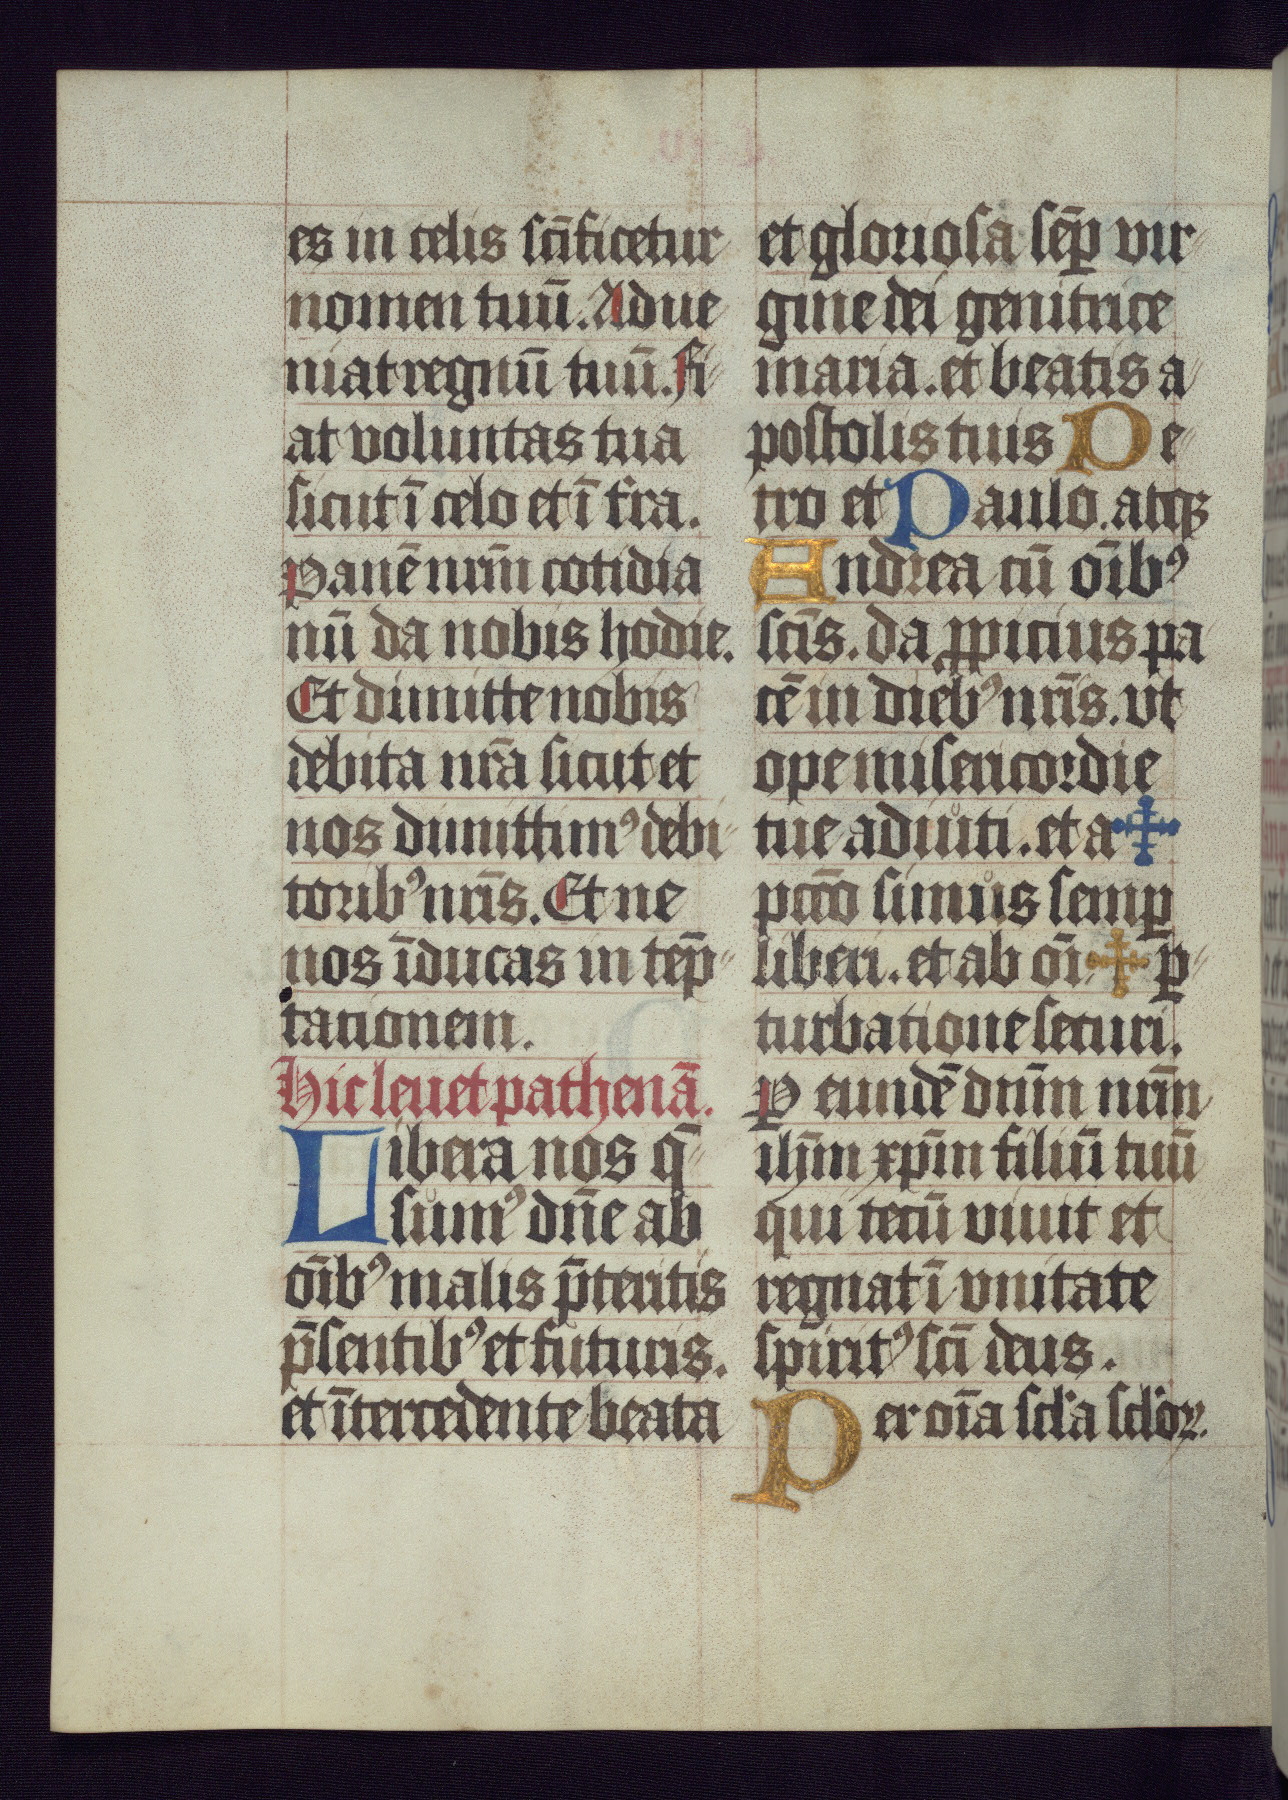 es in celis scīficetur
nomen tuū. Adue
niat regnū tuū. fi
at voluntas tua
sicut ī celo et ī t̄ra.
Panē nrm̄ cotidia
nū da nobis hodie.
Et dimitte nobis
debita nr̄a sicut et
nos dimittimꝰ debi
toribꝰ nrīs. Et ne
nos īducas in tēp
tationem.
Hic leuet pathenā.
Libera nos q̄
sumꝰ dn̄e ab
oībꝰ malis p̄teritis
p̄sentibꝰ et futuris.
et ītercedente beata
et gloriosa sēꝑ vir
gine dei genitrice
maria. et beatis a
postolis tuis Pe
tro et Paulo. atqꝫ
Andrea cū oībꝰ
sc̄is. da ꝓpicius pa
cē in diebꝰ nrīs. vt
ope misericordie
tue adiuti. et a ☩
pctō simus semꝑ
liberi. et ab oī ☩ ꝑ
turbatione securi.
P eundē dnm̄ nrm̄
ihm̄ xpm̄ filiū tuū
qui tecū viuit et
regnat ī vnitate
spiritꝰ sc̄i deus.
Per oīa scl̄a scl̄oꝝ.